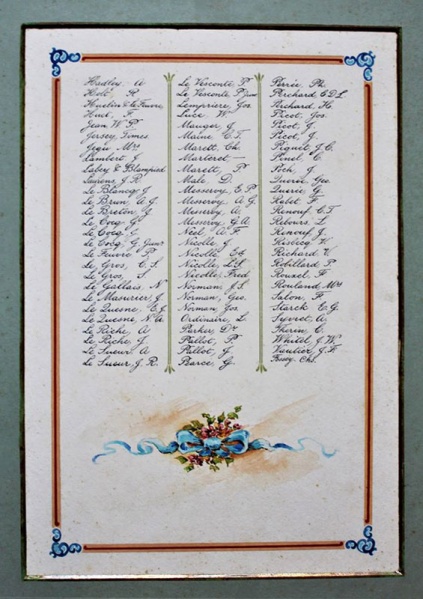 Hadley, A
Holt, R
Huelin & Le Feuvre
Hunt, F.
Jean W. P.
Jersey Times
Jean Mrs
Lambert, J
Labey & Blampied
Laurens, J. R.
Le Blancq, J
Le Brun, A. G.
Le Breton, J
Le Cocq, G
Le Cocq, C
Le Cocq, G. Junr
Le Feuvre, P
Le Gros, C. S.
Le Gros, S
Le Gallais, N
Le Masurier, J.
Le Quesne, E. J.
Le Quesne, N. A.
Le Riche, A
Le Riche, J
Le Sueur, A
Le Sueur, J. R.
Le Vesconte, P
Le Vesconte, P. Junr
Lempriere, Jos
Luce, W
Mauger, J
Maine, C. T.
Marett, Ch.
Marteret —
Marett, P
Male, D
Messervy, E. P.
Messervy, A. G.
Messervy, A.
Messervy, G. A.
Néel, A. F
Nicolle, J.
Nicolle, Ed
Nicolle,
Nicolle, Fred
Norman, J. S.
Norman, Geo.
Norman, Jos
Ordinaire, L.
Parker, Dr.
Pallot, P
Pallot, J.
Pearce, G.
Perrée, Ph.
Perchard, C. D. L.
Pichard, H.
Picot, Jos.
Picot, G.
Picot, J.
Piquet, J. C.
Pinel, C.
Poch, J
Querée, Geo
Querée, G.
Rebet, F
Renouf, C. T.
Rebours, L.
Renouf, J.
Richard, V.
Robillard, P.
Rouxel, F.
Rouland, Mrs
Salon, F.
Starck, E. G.
Syvret, A.
Therin, C.
Whitel, J. W.
Vautier, J. F.
Bossy, Chs.